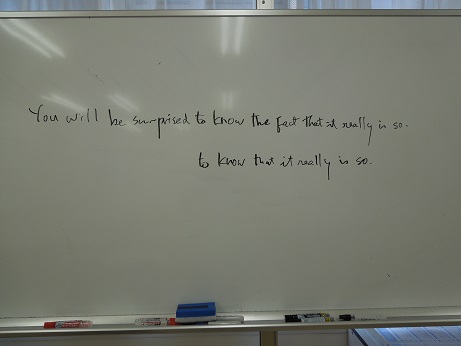 You will be surprised to know the fact that it really is so.
to know that it really is so.